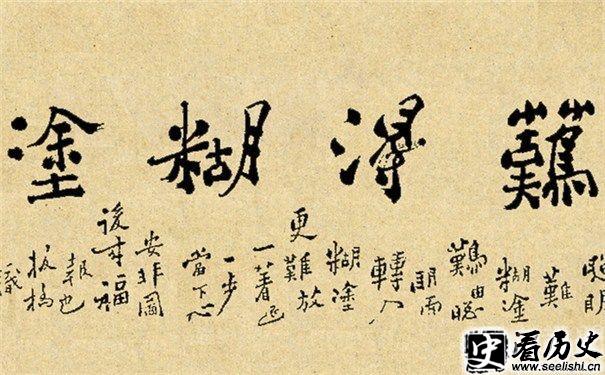 難得糊塗
聰明
難
糊塗
難由聰
明而
轉入
糊塗
更難放
一著退
一步
當下心
安非圖
後来福
報也
板橋
識
史看历史
www.seelishi.cn